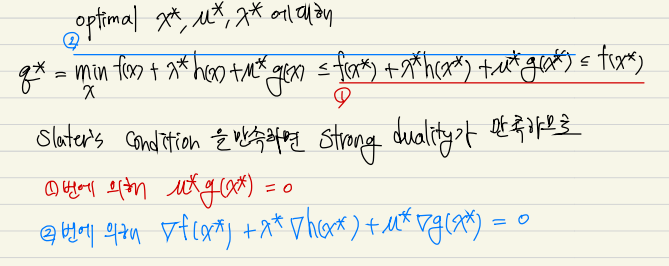 optimal x*, μ*, λ* 에 대해
②
q* = min f(x) + λ* h(x) + μ* g(x) ≤ f(x*) + λ* h(x*) + μ* g(x*) ≤ f(x*)
x
①
Slater's Condition 을 만족하면 strong duality가 만족하므로
①번에 의해 μ* g(x*) = 0
②번에 의해 ∇f(x*) + λ* ∇h(x*) + μ* ∇g(x*) = 0